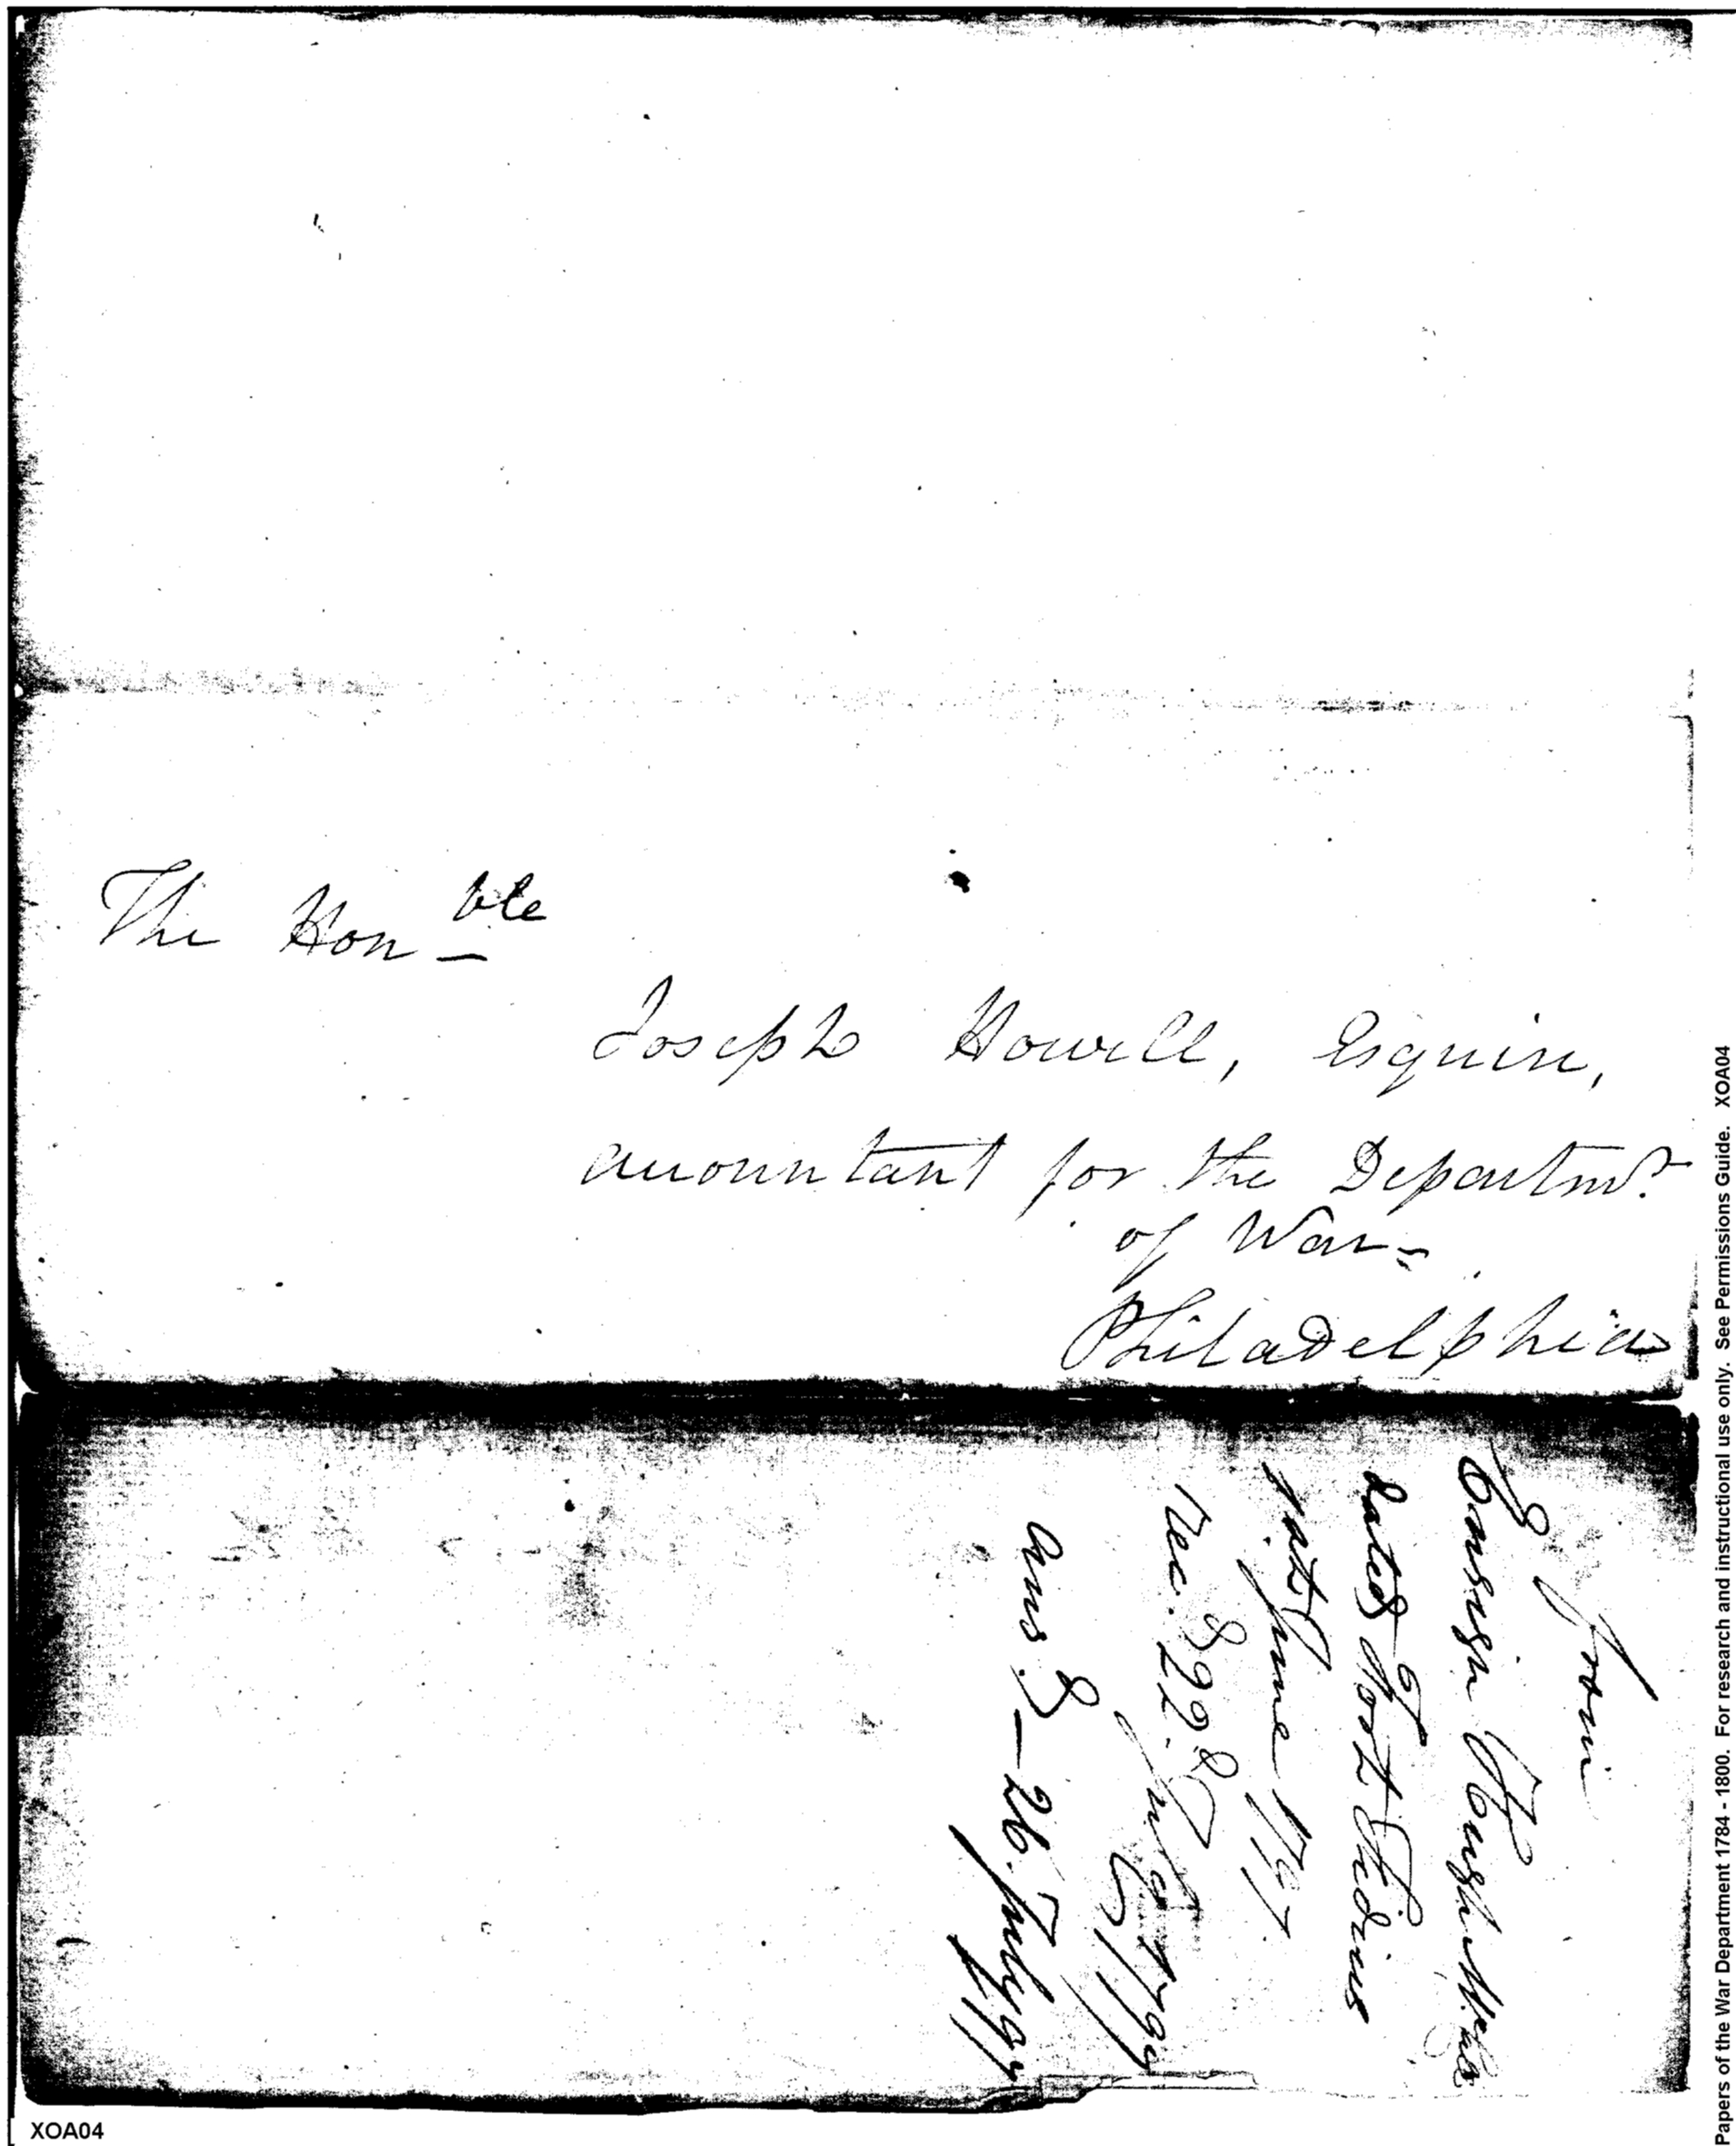 The Hon ble
Joseph Howell, Esquire,
accountant for the Departmt.
of War.
Philadelphia
From
Ensign Hugh
dated Fort Fidius
June 179
Rec.d 22.d July 179
Ans.d 26. July 179
XOA04
Papers of the War Department 1784 - 1800. For research and instructional use only. See Permissions Guide. XOA04